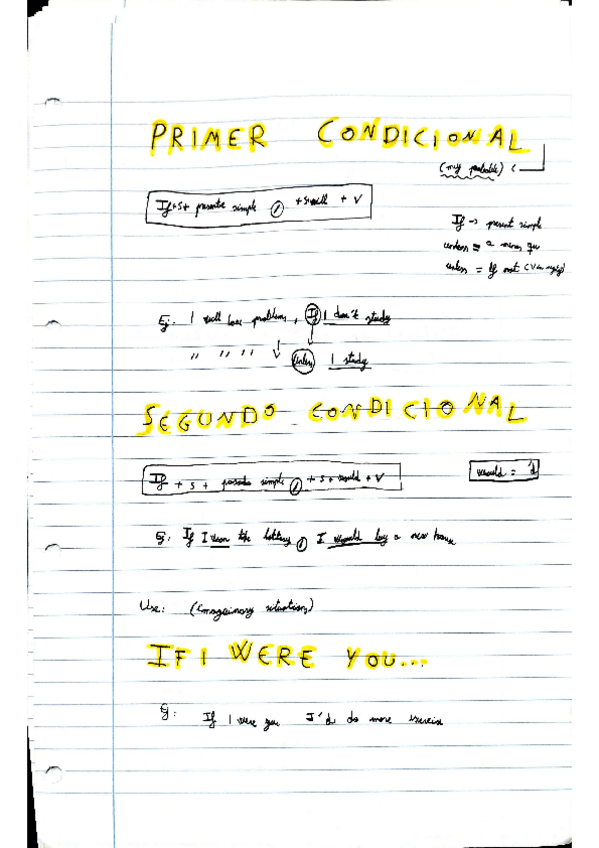 PRIMER CONDICIONAL
(muy probable)
If+S+ presente simple , + S+will + V
If → present simple
unless = a menos que
unless = If not (V in
Ej: I will have problems, If I don't study
" " " " unless I study
SEGUNDO CONDICIONAL
If + S + pasado simple , + S + would + V
would = 'd
Ej: If I won the lottery , I would buy a new house
Use: (Imaginary situations)
IF I WERE YOU...
Ej: If I were you I'd do more exercise